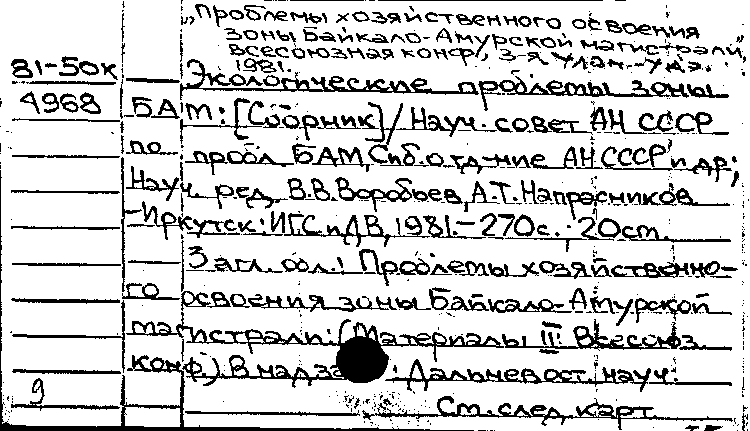 „Проблемы хозяйственного освоения
зоны Байкало-Амурской магистрали",
Всесоюзная конф., 3-я Улан-Удэ.
1981.
81-50к Экологические проблемы зоны
4968 БАМ: [Сборник] / Науч. совет АН СССР
по пробл. БАМ, Сиб. отд-ние АН СССР и др;
Науч. ред. В.В. Воробьев, А.Т. Напрасников
-Иркутск: ИГС и ДВ, 1981.- 270с.; 20 см.
Загл. обл.: Проблемы хозяйственно-
го освоения зоны Байкало-Амурской
магистрали: (Материалы III Всесоюз.
конф.) В надза : Дальневост. науч.
9 См. след. карт